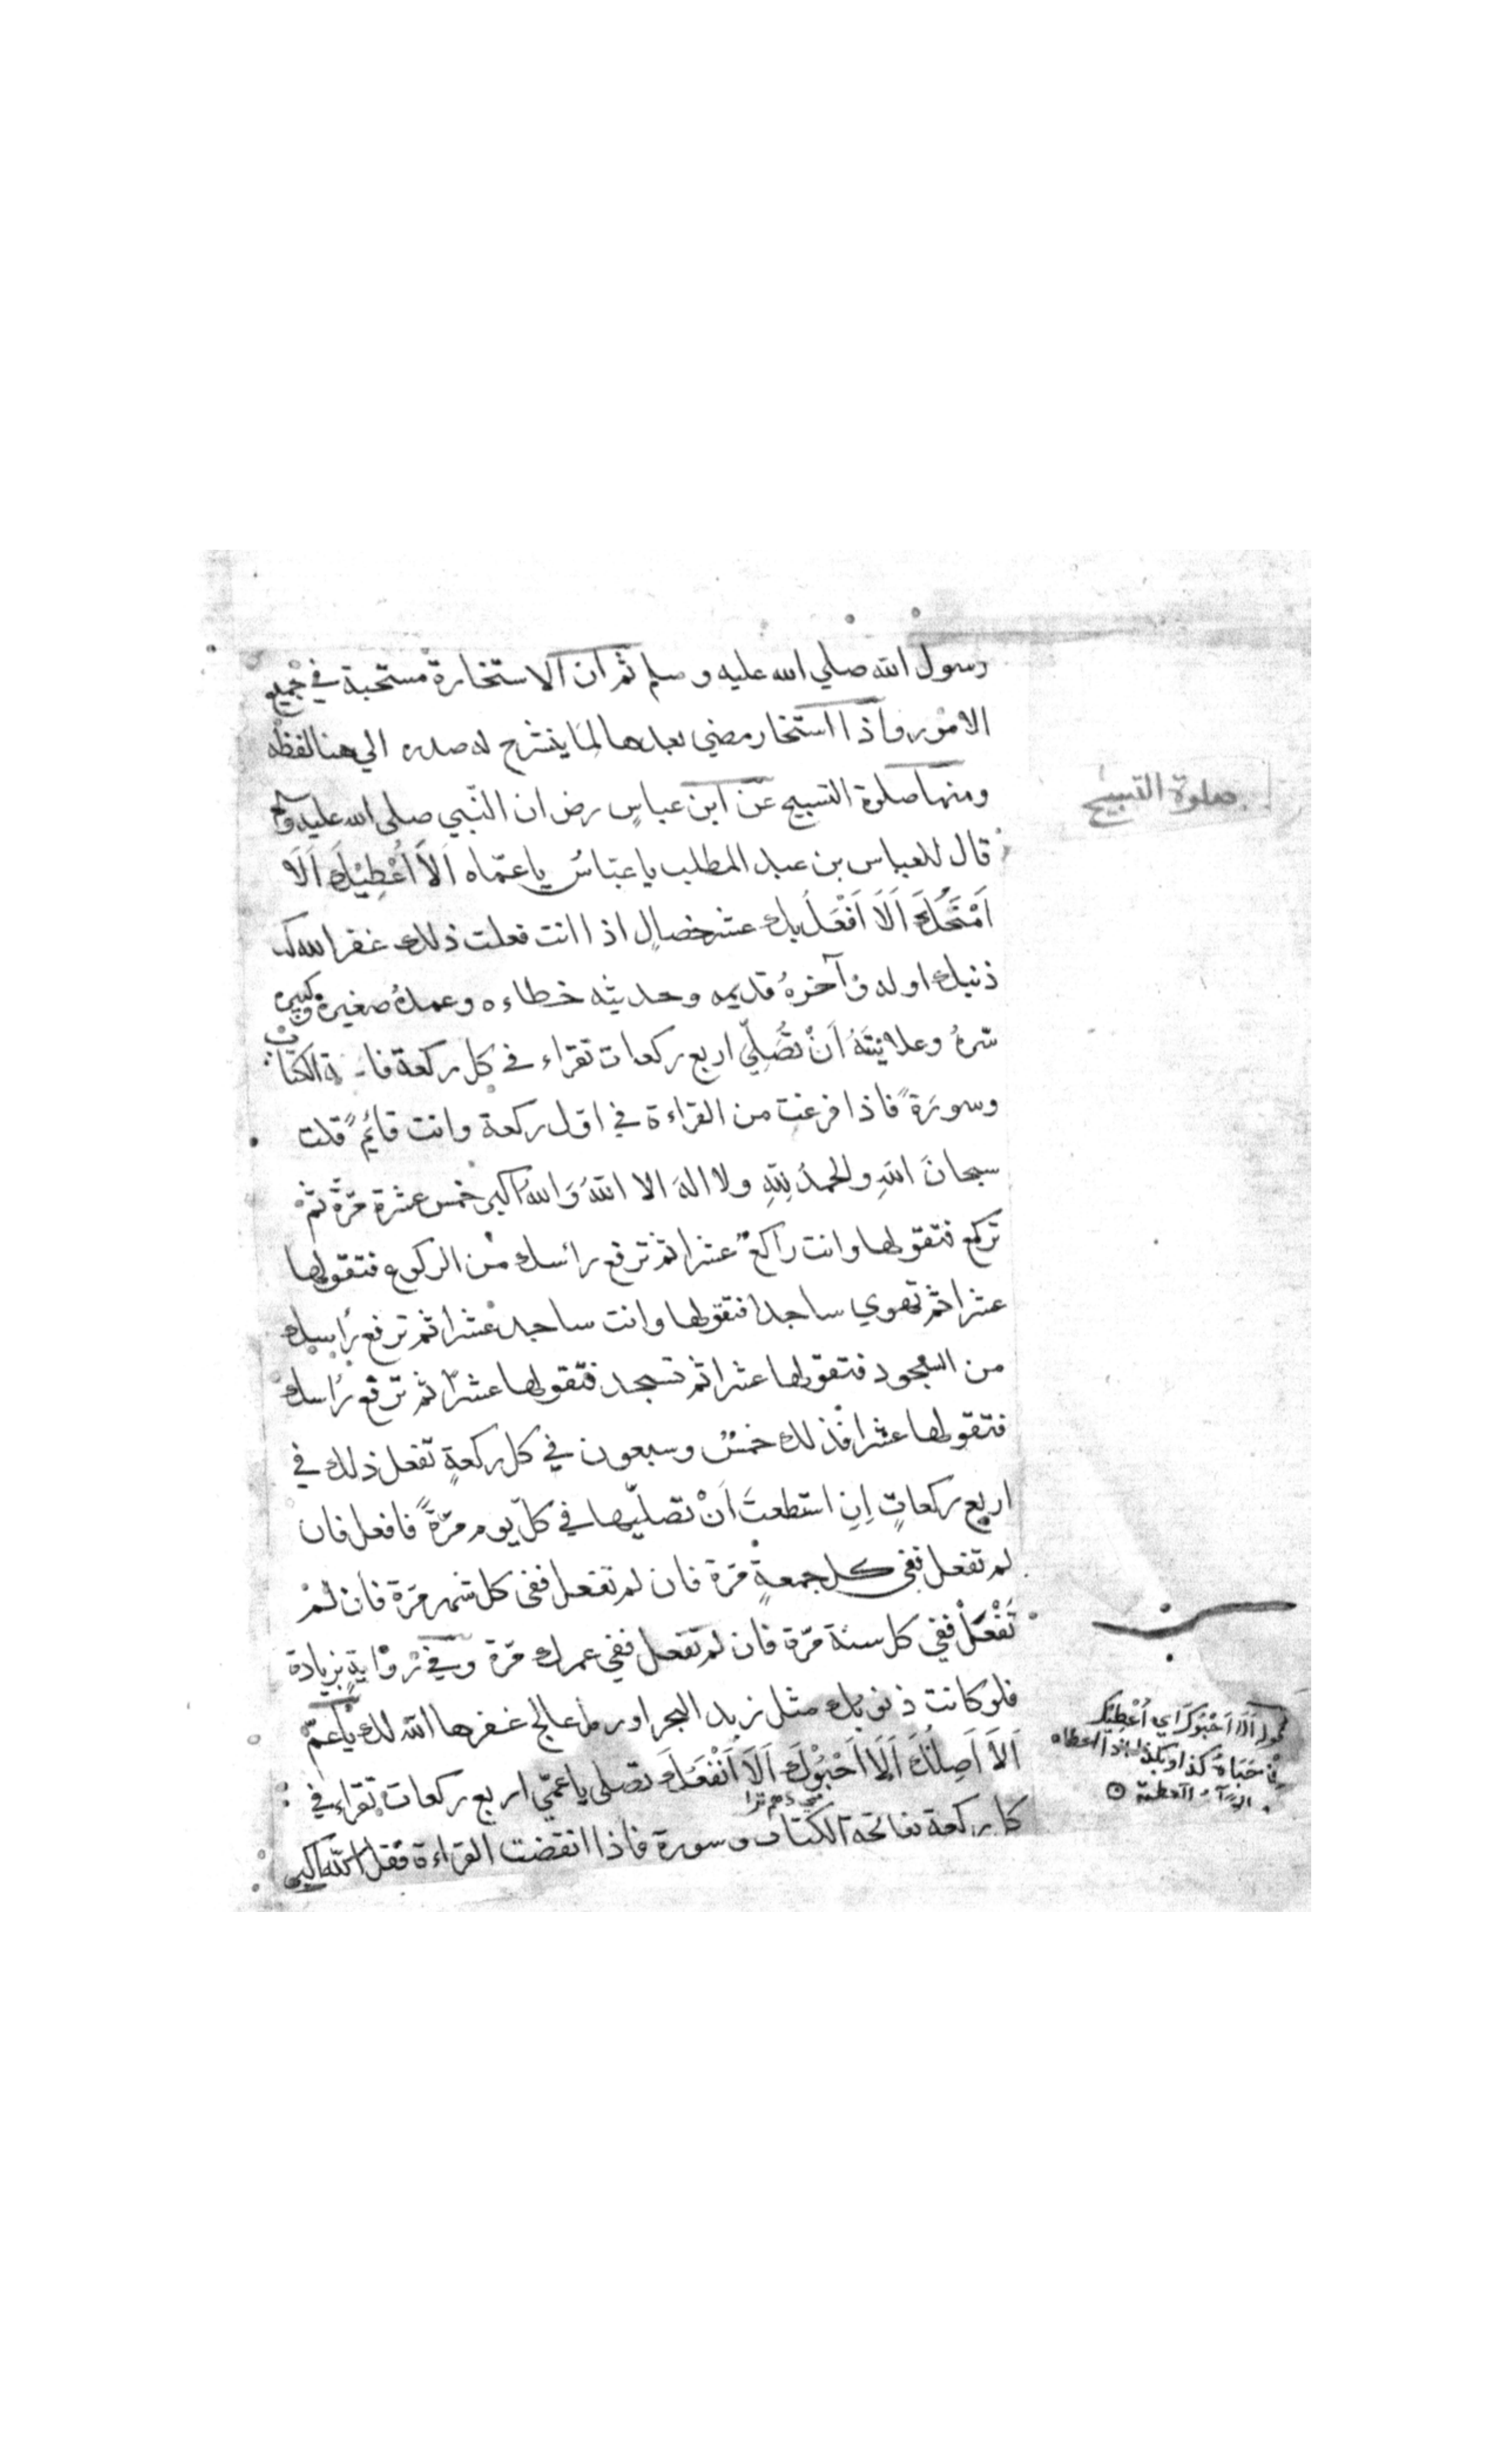 رسول الله صلي الله عليه وسلم ثم ان الاستخارة مستحبة في جميع
الامور واذا استخار مضي بعدها لما ينشرح له صدره الي هنا لفظه
ومنها صلوة التسبيح عن ابن عباسٍ رض ان النّبي صلى الله عليه و
صلوة التسبيح
قال للعباس بن عبد المطلب يا عبّاسُ يا عمّاه اَلَا اُعْطِيْكَ اَلَا
اَمْنَحُكَ اَلَا اَفْعَلُ بك عشر خصالٍ اذا انت فعلت ذلك غفر الله لك
ذنبك اوله وآخرهُ قديمه وحديثه خطاءه وعمدهُ صغيره وكبيره
سّرهُ وعلانيتَهُ اَنْ تُصَلِّيَ اربع ركعات تقراء في كل ركعة فاتحة الكتاب
وسورَةً فاذا فرغت من القراءة في اوّل ركعة وانت قائمٌ قلت
سبحانَ اللهِ والحمدُ لِلّهِ ولا الهَ الا اللهُ وَاللهُ اكبر خمس عشرة مّرّةً ثمّ
تركع فتقولها وانت راكعٌ عشرا ثم ترفع رائسك من الركوع فتقولها
عشرا ثم تهوي ساجدا فتقولها وانت ساجد عشرا ثم ترفع رأسك
من السّجود فتقولها عشرا ثم تسجد فتقولها عشرًا ثم ترفع رأسك
فتقولها عشرا فذلك خمسٌ وسبعون في كل ركعةٍ تفعل ذلك في
اربع ركعاتٍ اِنِ استطعتَ اَنْ تصلّيها في كلّ يوم مرّةً فافعل فان
لم تفعل ففي كل جمعةٍ مّرة فان لم تفعل ففي كل شهر مرّة فان لمْ
تَفْعَلْ ففي كل سنة مّرة فان لم تفعل ففي عمرك مّرة وفي روايةٍ بزيادة
فلو كانت ذنوبك مثل زبد البحر او رمل عالج غفرها الله لك يا عمّ
اَلَا اَصِلُكَ اَلَا اَحْبُوْكَ اَلَا اَنْفَعُكَ تصلى يا عمّي اربع ركعات تقراء في
كل ركعة بفاتحة الكتاب وسورة فاذا انقضت القراءة فقل الله اكبر
اَلَا اَحْبُوكَ اي اُعْطِيك
حَبَاهُ كذا وبكذا اذا اعطاه